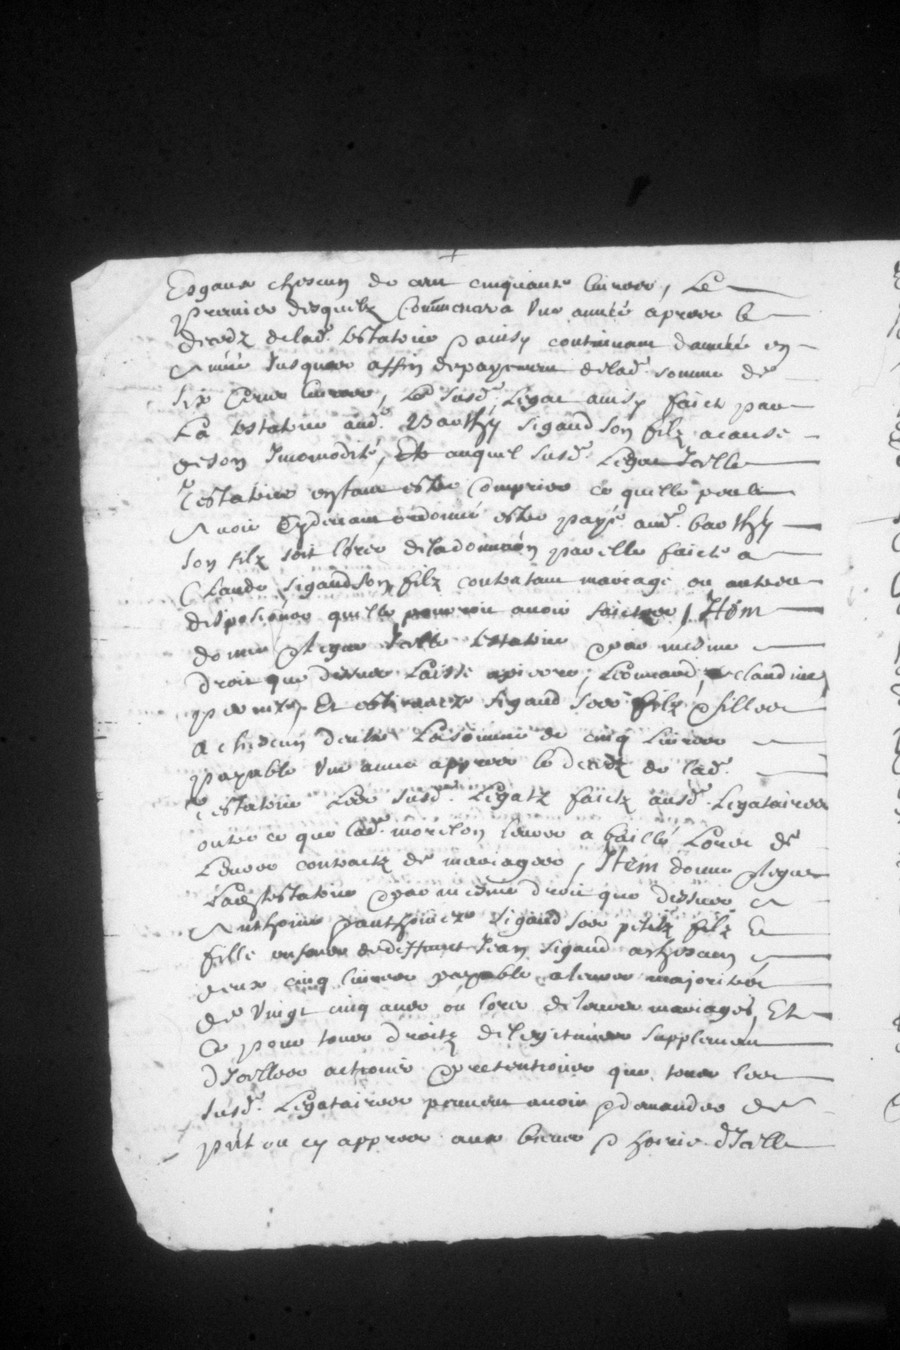 Esgaux chescun de cent cinquante livres, Le
premier desquelz Commencera Une année apres le
decedz de lad. testatrice & ainsy continuant d'année en
Année Jusques affin de payement de lad. somme de
six Cens livres, Le susd. Legat ainsy faict par
La testatrice aud. Barthy Sigaud son filz a cause
de son Jncomodité, Et auquel susd. Legat Jcelle
testatrice entant estre Comprins ce quelle peult
Avoir Cydevant ordonné estre payé aud. barthy
son filz soit lors de la donnaon par elle faicte a
Claude Sigaud son filz contratant mariage ou autres
dispositions quelle pourroit avoir faictes, Item
donne & legue Jcelle testatrice par mesme
droit que dessus Laisse a pierre, Leonard, & claudine
Et Sigaud ses filz & filles
A chescun d'eulx La somme de cinq Livres
payable Une année appres le decedz de lad.
testatrice Les susd. Legatz faictz ausd. Legataires
outre ce que lad. morilon leurs a baillé Lors de
Leurs contractz de mariages, Item donne & legue
Lad. testatrice par mesme droit que dessus A
Anthoine Sigaud ses petitz filz Et
fille enfans de deffunct Jean Sigaud a chescun
deux cinq livres payable a leurs majorités
de Vingt cinq ans ou lors de leurs mariages, Et
Ce pour tous droictz de legitimes supplement
d'Jcelles actions & pretentions que tous les
susd. Legataires peuvent avoir & demander de
pnt ou cy appres aux biens & hoirie d'Jcelle